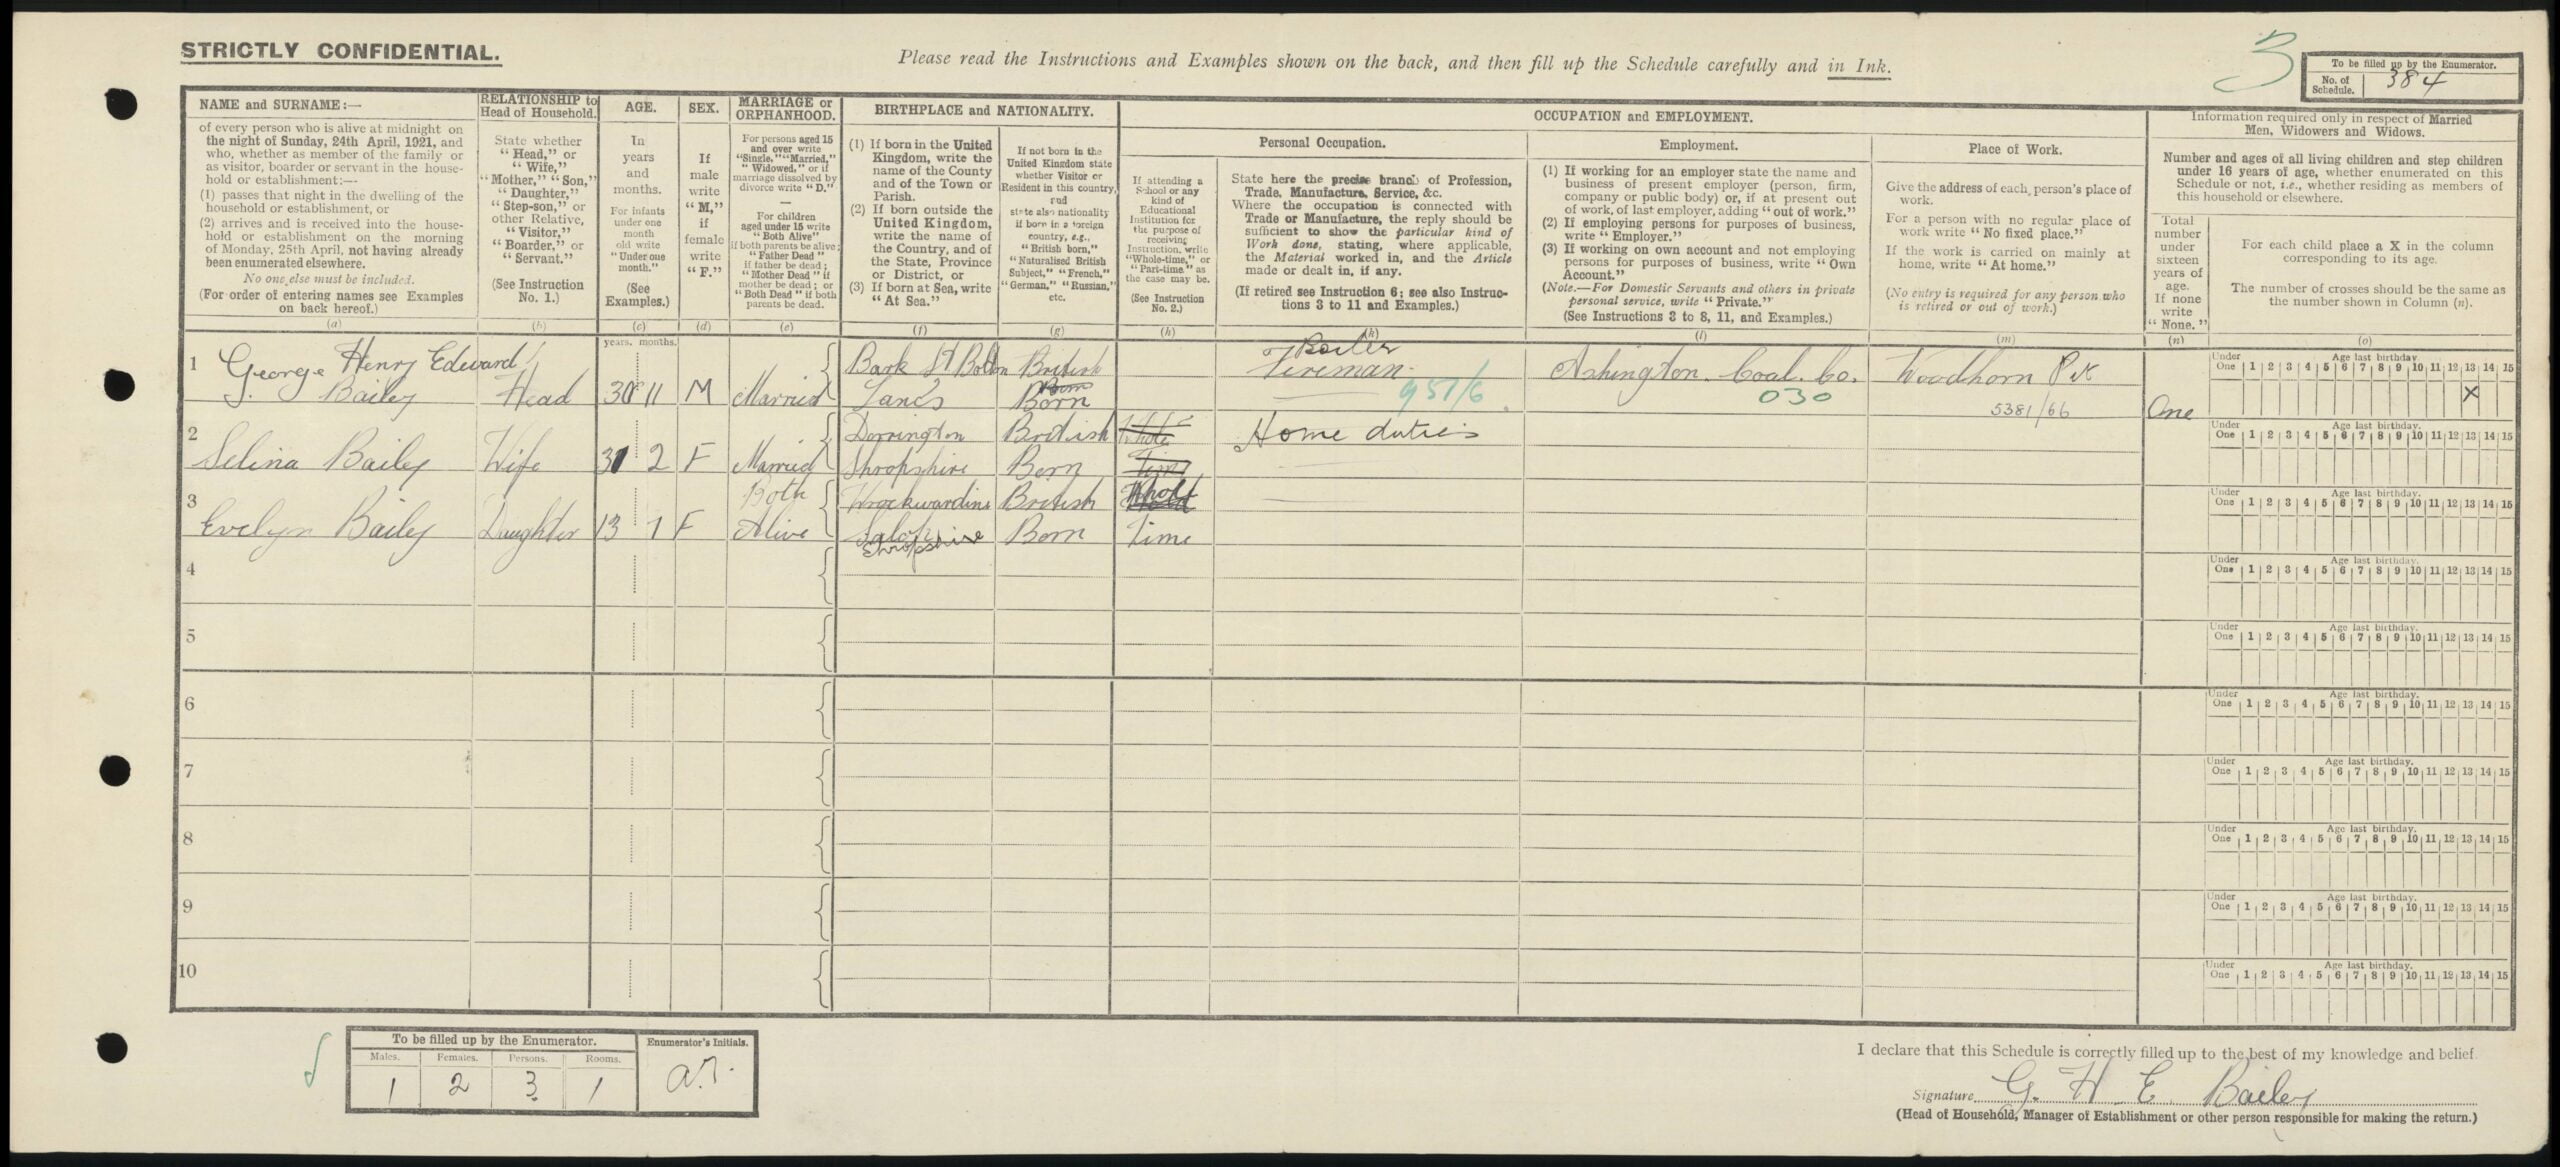 STRICTLY CONFIDENTIAL.
Please read the Instructions and Examples shown on the back, and then fill up the Schedule carefully and in Ink.
3
To be filled up by the Enumerator.
No. of Schedule. 384
NAME and SURNAME:—
of every person who is alive at midnight on
the night of Sunday, 24th April, 1921, and
who, whether as member of the family or
as visitor, boarder or servant in the house-
hold or establishment:—
(1) passes that night in the dwelling of the
household or establishment, or
(2) arrives and is received into the house-
hold or establishment on the morning
of Monday, 25th April, not having already
been enumerated elsewhere.
No one else must be included.
(For order of entering names see Examples
on back hereof.)
(a)
RELATIONSHIP to
Head of Household.
State whether
"Head," or
"Wife,"
"Mother," "Son,"
"Daughter,"
"Step-son," or
other Relative,
"Visitor,"
"Boarder," or
"Servant."
(See Instruction
No. 1.)
(b)
AGE.
In
years
and
months.
For infants
under one
month
old write
"Under one
month."
(See
Examples.)
(c)
SEX.
If
male
write
"M,"
if
female
write
"F."
(d)
MARRIAGE or
ORPHANHOOD.
For persons aged 15
and over write
"Single," "Married,"
"Widowed," or if
marriage dissolved by
divorce write "D."
—
For children
aged under 15 write
"Both Alive"
if both parents be alive;
"Father Dead"
if father be dead;
"Mother Dead" if
mother be dead; or
"Both Dead" if both
parents be dead.
(e)
BIRTHPLACE and NATIONALITY.
(1) If born in the United
Kingdom, write the
name of the County
and of the Town or
Parish.
(2) If born outside the
United Kingdom,
write the name of
the Country, and of
the State, Province
or District, or
(3) If born at Sea, write
"At Sea."
(f)
If not born in the
United Kingdom state
whether Visitor or
Resident in this country,
and
state also nationality
if born in a foreign
country, e.g.,
"British born,"
"Naturalised British
Subject," "French,"
"German," "Russian,"
etc.
(g)
OCCUPATION and EMPLOYMENT.
If attending a
School or any
kind of
Educational
Institution for
the purpose of
receiving
Instruction, write
"Whole-time," or
"Part-time," as
the case may be.
(See Instruction
No. 2.)
(h)
Personal Occupation.
State here the precise branch of Profession,
Trade, Manufacture, Service, &c.
Where the occupation is connected with
Trade or Manufacture, the reply should be
sufficient to show the particular kind of
Work done, stating, where applicable,
the Material worked in, and the Article
made or dealt in, if any.
(If retired see Instruction 6; see also Instruc-
tions 3 to 11 and Examples.)
(k)
Employment.
(1) If working for an employer state the name and
business of present employer (person, firm,
company or public body) or, if at present out
of work, of last employer, adding "out of work."
(2) If employing persons for purposes of business,
write "Employer."
(3) If working on own account and not employing
persons for purposes of business, write "Own
Account."
(Note.—For Domestic Servants and others in private
personal service, write "Private.")
(See Instructions 3 to 8, 11, and Examples.)
(l)
Place of Work.
Give the address of each person's place of
work.
For a person with no regular place of
work write "No fixed place."
If the work is carried on mainly at
home, write "At home."
(No entry is required for any person who
is retired or out of work.)
(m)
Information required only in respect of Married
Men, Widowers and Widows.
Number and ages of all living children and step children
under 16 years of age, whether enumerated on this
Schedule or not, i.e., whether residing as members of
this household or elsewhere.
Total
number
under
sixteen
years of
age.
If none
write
"None."
(n)
For each child place a X in the column
corresponding to its age.
The number of crosses should be the same as
the number shown in Column (n).
(o)
years. months.
1
George Henry Edward
Bailey Head 30 11 M Married
Bark St Bolton
Lancs
British
Born
Boiler
Fireman
951/6
Ashington Coal. Co.
030
Woodhorn Pit
5381/66
One
Under One 1 2 3 4 5 6 7 8 9 10 11 12 13 14 15
Age last birthday.
X
2
Selina Bailey Wife 31 2 F Married
Dorrington
Shropshire
British
Born
Whole
Time
Home duties
Under One 1 2 3 4 5 6 7 8 9 10 11 12 13 14 15
Age last birthday.
3
Evelyn Bailey Daughter 13 1 F
Both
Alive
Wrockwardine
Salop
Shropshire
British
Born
Whole
Time
Under One 1 2 3 4 5 6 7 8 9 10 11 12 13 14 15
Age last birthday.
4
Under One 1 2 3 4 5 6 7 8 9 10 11 12 13 14 15
Age last birthday.
5
Under One 1 2 3 4 5 6 7 8 9 10 11 12 13 14 15
Age last birthday.
6
Under One 1 2 3 4 5 6 7 8 9 10 11 12 13 14 15
Age last birthday.
7
Under One 1 2 3 4 5 6 7 8 9 10 11 12 13 14 15
Age last birthday.
8
Under One 1 2 3 4 5 6 7 8 9 10 11 12 13 14 15
Age last birthday.
9
Under One 1 2 3 4 5 6 7 8 9 10 11 12 13 14 15
Age last birthday.
10
Under One 1 2 3 4 5 6 7 8 9 10 11 12 13 14 15
Age last birthday.
To be filled up by the Enumerator.
Enumerator's Initials.
Males. Females. Persons. Rooms.
1 2 3 1
I declare that this Schedule is correctly filled up to the best of my knowledge and belief.
Signature G. H. E. Bailey
(Head of Household, Manager of Establishment or other person responsible for making the return.)